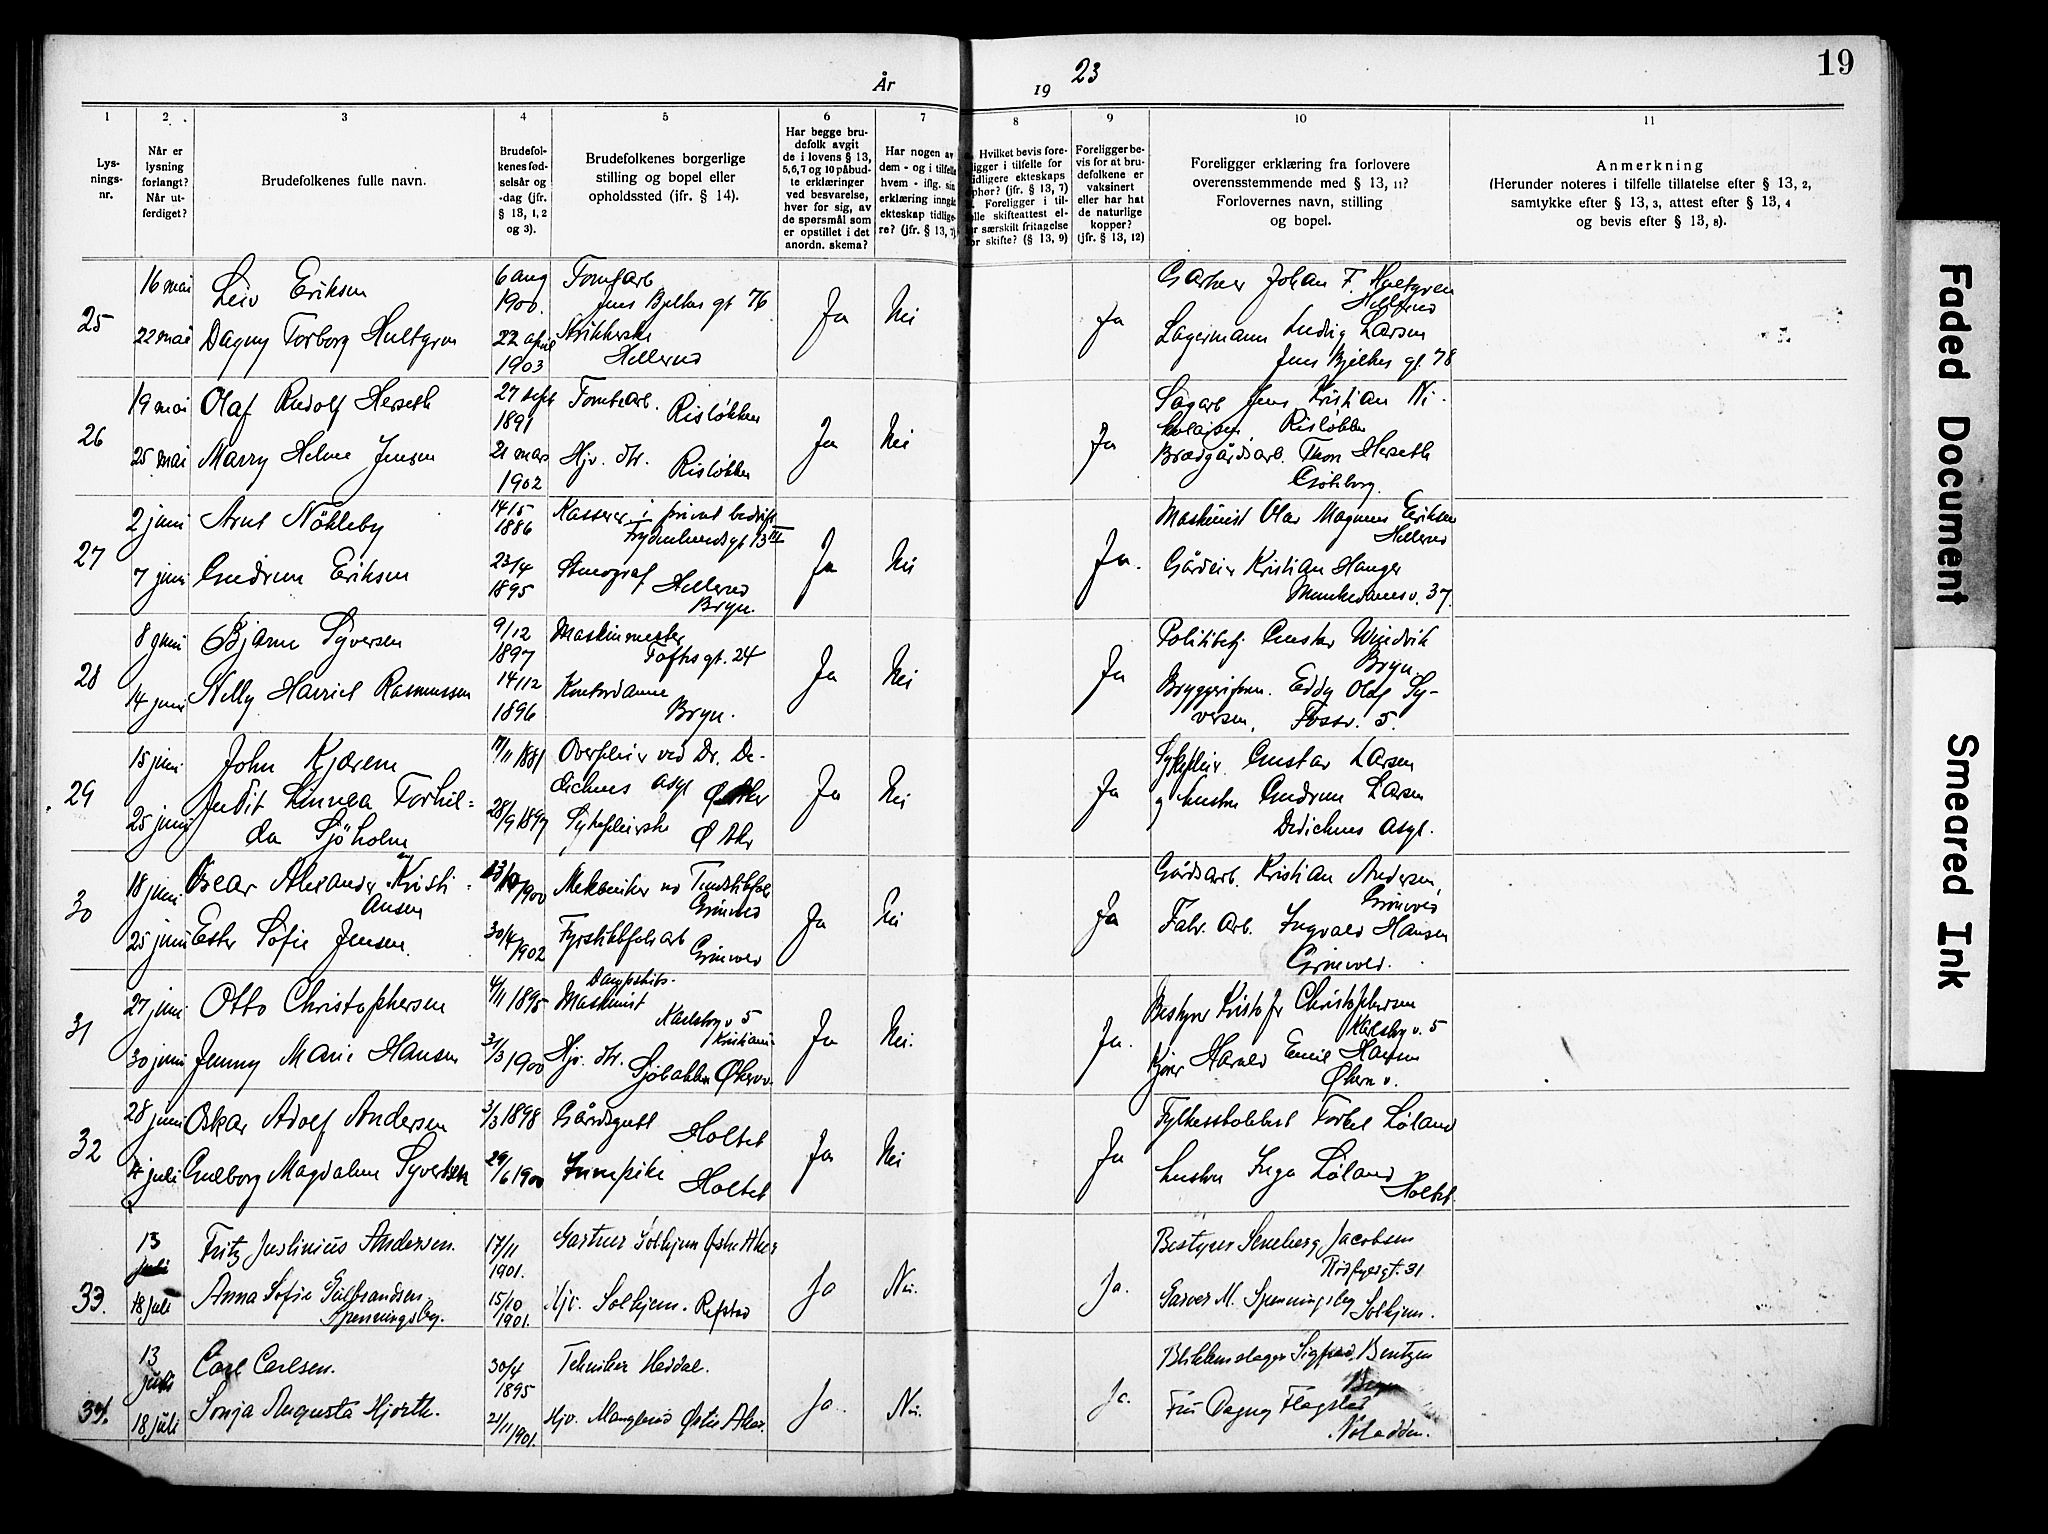 19
År 19 23
1 2 3 4 5 6 7 8 9 10 11
Lysningsnr.
Når er lysning forlangt? Når utferdiget?
Brudefolkenes fulle navn.
Brudefolkenes fødselsår og -dag (jfr. § 13, 1, 2 og 3).
Brudefolkenes borgerlige stilling og bopel eller opholdssted (jfr. § 14).
Har begge brudefolk avgit de i lovens § 13, 5, 6, 7 og 10 påbudte erklæringer ved besvarelse, hver for sig, av de spørsmål som er opstillet i det anordn. skema?
Har nogen av dem - og i tilfelle hvem - iflg. sin erklæring inngått ekteskap tidligere? (jfr. § 13, 7)
Hvilket bevis foreligger i tilfelle for tidligere ekteskaps ophør? (jfr. § 13, 7) Foreligger i tilfelle skifteattest eller særskilt fritagelse for skifte? (§ 13, 9)
Foreligger bevis for at brudefolkene er vaksinert eller har hat de naturlige kopper? (jfr. § 13, 12)
Foreligger erklæring fra forlovere overensstemmende med § 13, 11? Forlovernes navn, stilling og bopel.
Anmerkning
(Herunder noteres i tilfelle tillatelse efter § 13, 2, samtykke efter § 13, 3, attest efter § 13, 4 og bevis efter § 13, 8).
25
16 mai Leiv Eriksen 6 aug 1900 Tomtearb Jens Bjelkes gt 76 Ja Nei Ja Gartner Johan F. Hultgren Hellerud
22 mai Dagny Torborg Hultgren 22 april 1903 Strikkerske Hellerud Lagermann Ludvig Larsen Jens Bjelkes gt. 78
26
19 mai Olaf Rudolf Herseth 27 sept 1891 Tomtearb. Risløkken Ja Nei Ja Sagarb Jens Kristian Nikolaisen, Risløkken
25 mai Marry Helene Jensen 21 mars 1902 Hjv. dtr. Risløkken Brædgårdsarb. Thor Herseth Göteborg.
27
2 juni Arne Nökleby 14/5 1886 Kasserer i privat bedrift Frydenlundsgt 13 III Ja Nei Ja. Maskinist Olav Magnus Eriksen Hellerud
7 juni Gudrun Eriksen 23/4 1895 Stenograf Hellerud Bryn. Gårdeier Kristian Hauger Munkedamsv. 37.
28
8 juni Bjarne Syversen 9/12 1897 Maskinmester Toftesgt. 24 Ja Nei Ja Politibetj Gustav Windvik Bryn.
14 juni Nelly Harriet Rasmussen 14/12 1896 Kontordame Bryn. Bryggeriform. Eddy Olaf Syversen, Fossv. 5.
29
15 juni John Kjærem 17/11 1881 Overpleier ved Dr. Dedichens asyl Ø Aker Ja Nei Ja Sykepleier Gustav Larsen
25 juni Judit Linnea Torhilda Sjöholm 28/9 1897 Sykepleierske Ø Aker og hustru Gudrun Larsen Dedichens Asyl.
30
18 juni Oscar Alexander Kristiansen 1900 Mekaniker ved Tændstikfab Grønvold Ja Nei Ja Gårdsarb. Kristian Andersen, Grønvold
25 juni Ester Sofie Jensen. 30/4 1902 Fyrstikfab arb Grønvold Fabr. Arb. Ingvald Hansen Grønvold.
31
27 juni Otto Christophersen 4/11 1895 Dampskibs-Maskinist Karlsbog v 5 Kristiania Ja Nei. Ja. Bestyrer Kristofer Christophersen Karlsbog v. 5
30 juni Jenny Marie Hansen 31/3 1900 Hjv. dtr. Sjöbakken Økernv. Kjører Harald Emil Hansen Økern v.
32
28 juni Oskar Adolf Andersen 3/3 1898 Gårdsgutt Holtet Ja Nei Ja Fylkesskolebest Torkel Løland
4 juli Gudborg Magdalene Syversen 29/6 1900 Innepike Holtet hustru Inga Løland Holtet.
33.
13 juli Fritz Justinius Andersen. 17/11 1901. Gartner Solhjem Østre Aker Ja Nei. Ja. Bestyrer Jacobsen Rødfyldgt. 31
18 juli Anna Sofie Gulbrandsen Spenningsby. 15/10 1901. Hjv. Solhjem. Refstad Garver M. Spenningsby Solhjem.
34.
13 juli Carl Carlsen. 30/4 1895 Tekniker Heddal. Ja. Nei. Ja. Blikkenslager Sigfred Bentzen Bryn
18 juli Sonja Augusta Hjorth. 21/11 1901. Hjv. Manglerud Østre Aker. Fru Dagny Flagstad Notodden.
Faded Document
Smeared Ink